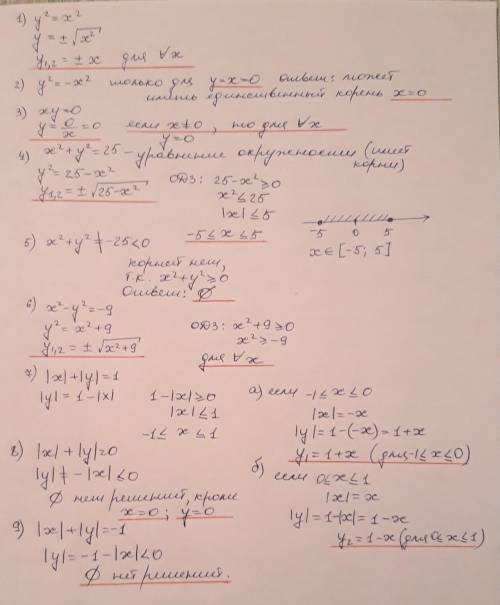 1) y² = x²
y = ±√x²
y₁,₂ = ± x для ∀x
2) y² = -x² только для y=x=0 ответ: может
иметь единственный корень x=0
3) xy=0
y = 0/x = 0 если x≠0, то для ∀x
y=0
4) x²+y²=25 - уравнение окружности (имеет
корни)
y² = 25-x²
y₁,₂ = ±√25-x²
ОДЗ: 25-x²≥0
x²≤25
|x|≤5
-5≤x≤5
-5 0 5
x∈[-5; 5]
5) x²+y²≠-25<0
корней нет,
т.к. x²+y²≥0
Ответ: ∅
6) x²-y²=-9
y²=x²+9
y₁,₂ = ±√x²+9
ОДЗ: x²+9≥0
x²≥-9
для ∀x
7) |x|+|y|=1
|y|=1-|x|
1-|x|≥0
|x|≤1
-1≤x≤1
а) если -1≤x≤0
|x|=-x
|y|=1-(-x)=1+x
y₁=1+x (для -1≤x≤0)
б) если 0≤x≤1
|x|=x
|y|=1-|x|=1-x
y₂=1-x (для 0≤x≤1)
8) |x|+|y|=0
|y|≠-|x|≤0
∅ нет решений, кроме
x=0; y=0
9) |x|+|y|=-1
|y|=-1-|x|<0
∅ нет решений.